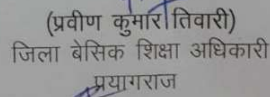 (प्रवीण कुमार तिवारी)
जिला बेसिक शिक्षा अधिकारी
प्रयागराज